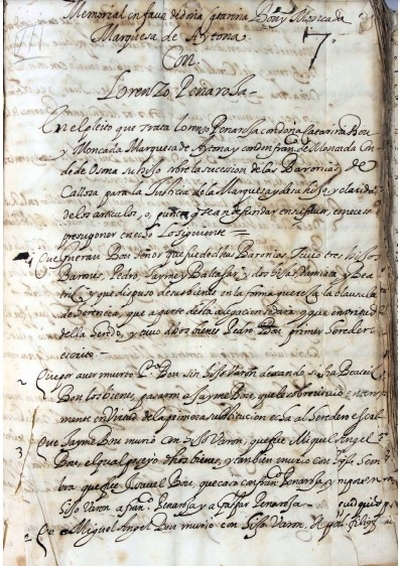 Memorial en favor de doña Catarina Bou y Moncada
Marquesa de Aytona
7.
Con
Lorenzo Peñarosa
En el pleito que trata Lorenzo Peñarosa con doña Catarina Bou
y Moncada Marquesa de Aytona y con don fran.co de Moncada Con
de de Osona su hijo sobre la sucession de las Baronias de
Callosa para la Justicia de la Marquesa y de su hijo, y claridad
de los articulos, o, puntos que se an de fundar en
presuponer en echo lo siguiente
1 Que fueran Bou señor que fue de dichas Baronias tuvo tres hijos
Barones Pedro, Jayme y Baltasar, y dos hijas Damiata y Bea
triz y que dispuso de sus bienes en la forma que reza la clausula
de herencia, que a parte de la alegacion se dara y que en virtud
della heredo, y tuvo dichos bienes Pedro Bou primer heredero
escrito
2 Que por aver muerto P.o Bou sin hijo Varon dexando a hija Beatriz
Bou los bienes, pasaron a Jayme Bou, que le sobrevivio
mente en virtud de la primera substitucion echa al heredero
3 Que Jayme Bou murio con hijo Varon, que fue Miguel Angel
Bou, el qual posseyo dichos bienes, y tambien murio con hija hem
bra que fue Isabel Bou, que caso con fran.co Peñarosa y
hijo Varon a fran.co Peñarosa y a Gaspar Peñarosa
2 Que Miguel Angel Bou murio con hijo Varon